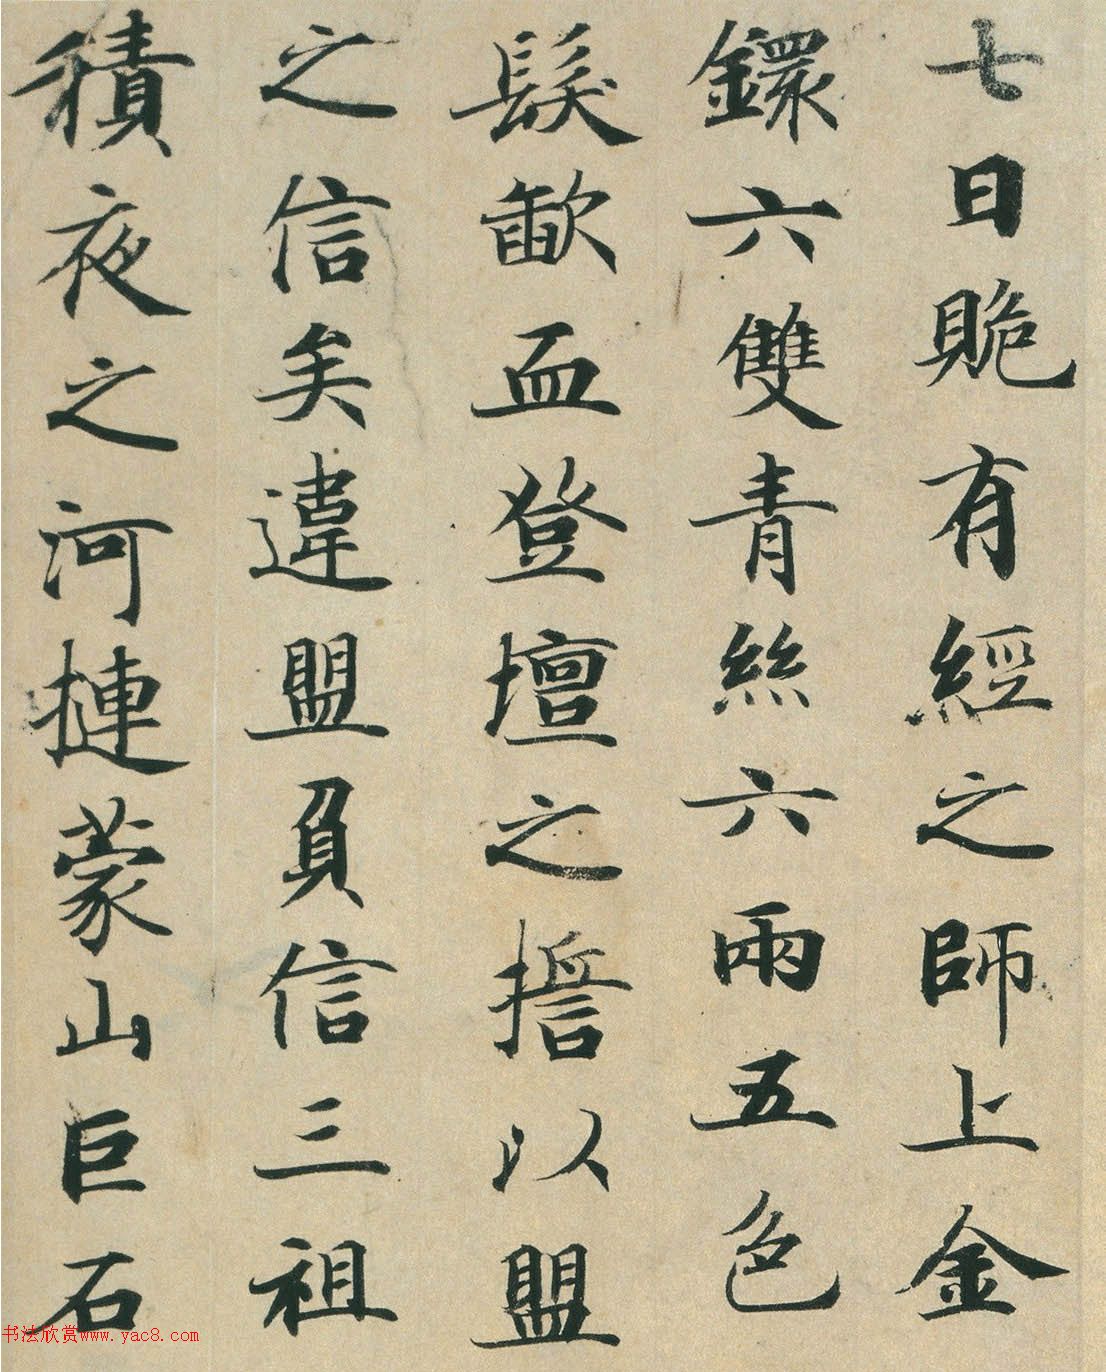 七日貽有經之師上金
鐶六雙青絲六兩五色
髮歃血登壇之誓以盟
之信矣違盟負信三祖
積夜之河摙蒙山巨石
书法欣赏www.yac8.com